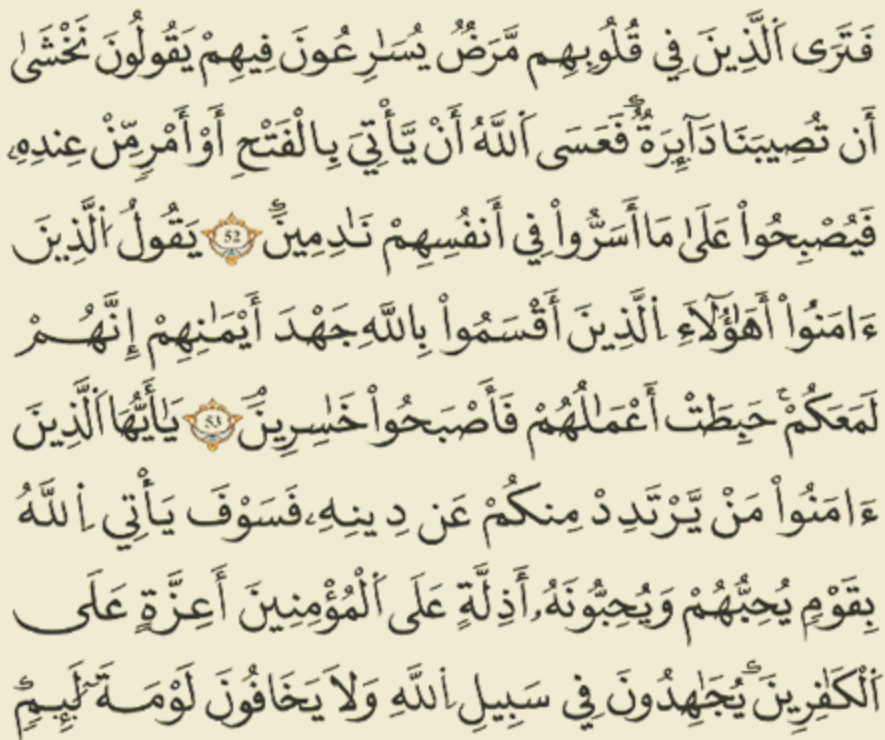 فَتَرَى اَ۬لَّذِينَ فِي قُلُوبِهِم مَّرَضٞ يُسَٰرِعُونَ فِيهِمْ يَقُولُونَ نَخْشَىٰ
أَن تُصِيبَنَا دَآئِرَةٞۖ فَعَسَى اَ۬للَّهُ أَنْ يَّأْتِيَ بِالْفَتْحِ أَوْ أَمْرٖ مِّنْ عِندِهِۦ
فَيُصْبِحُواْ عَلَىٰ مَا أَسَرُّواْ فِي أَنفُسِهِمْ نَٰدِمِينَۖ 52 يَقُولُ اُ۬لَّذِينَ
ءَامَنُواْ أَهَٰٓؤُلَآءِ اِ۬لَّذِينَ أَقْسَمُواْ بِاللَّهِ جَهْدَ أَيْمَٰنِهِمْ إِنَّهُمْ
لَمَعَكُمْۖ حَبِطَتْ أَعْمَٰلُهُمْ فَأَصْبَحُواْ خَٰسِرِينَۖ 53 يَٰأَيُّهَا اَ۬لَّذِينَ
ءَامَنُواْ مَنْ يَّرْتَدِدْ مِنكُمْ عَن دِينِهِۦ فَسَوْفَ يَأْتِي اِ۬للَّهُ
بِقَوْمٖ يُحِبُّهُمْ وَيُحِبُّونَهُۥ أَذِلَّةٍ عَلَى اَ۬لْمُؤْمِنِينَ أَعِزَّةٍ عَلَى
اَ۬لْكَٰفِرِينَۖ يُجَٰهِدُونَ فِي سَبِيلِ اِ۬للَّهِ وَلَا يَخَافُونَ لَوْمَةَ لَآئِمٖۖ